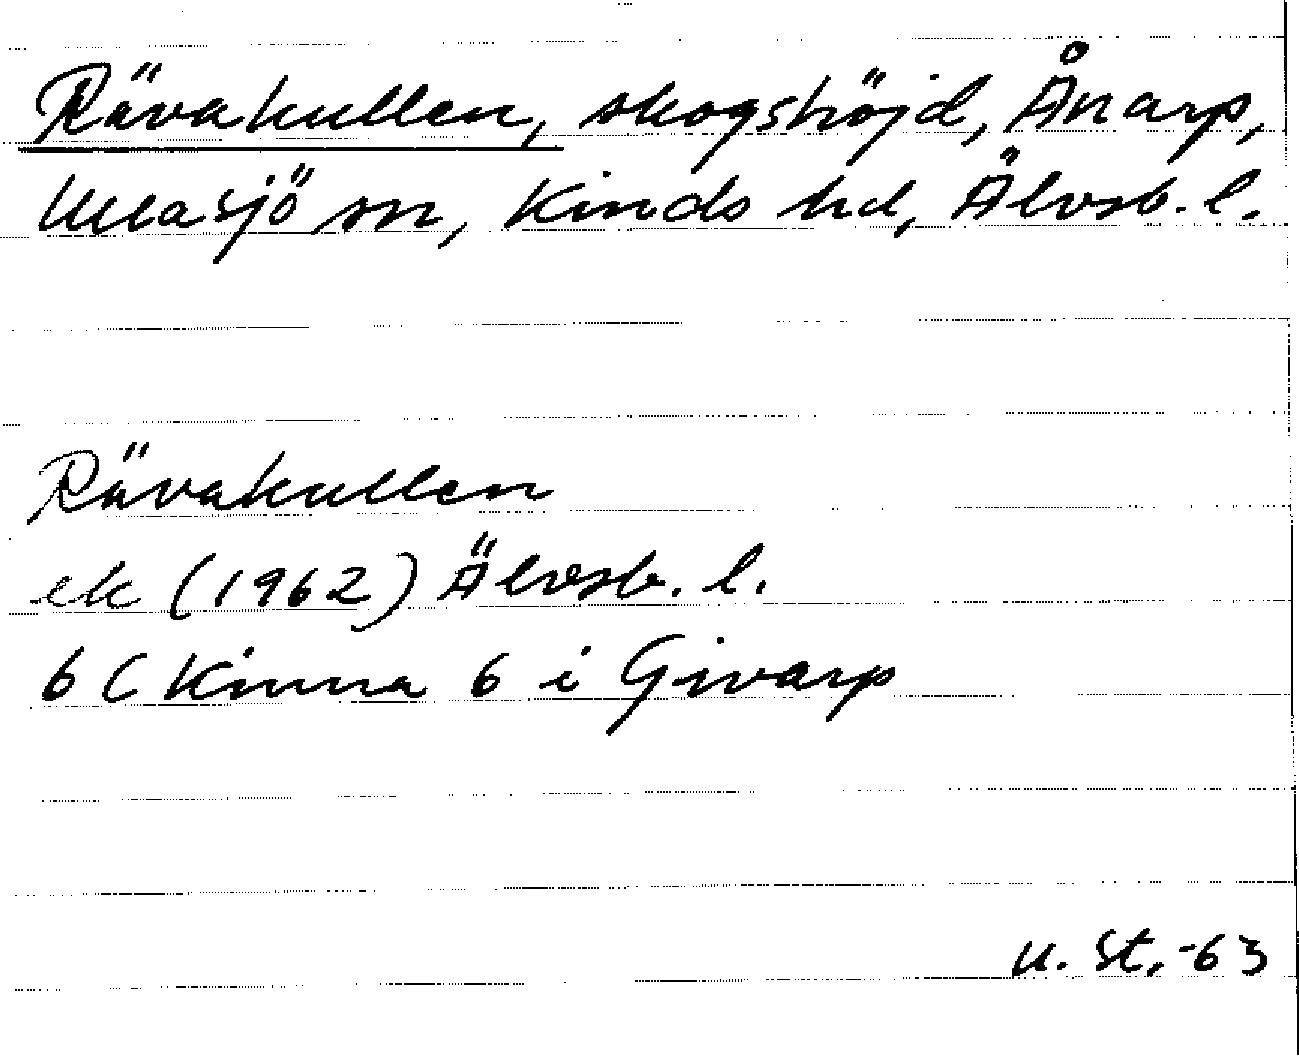 Rävakullen, skogshöjd, Ånarp,
Ullasjö sn, Kinds hd, Älvsb. l.
Rävakullen
ek (1962) Älvsb. l.
6 C Kinna 6 i Givarp
U. St. -63